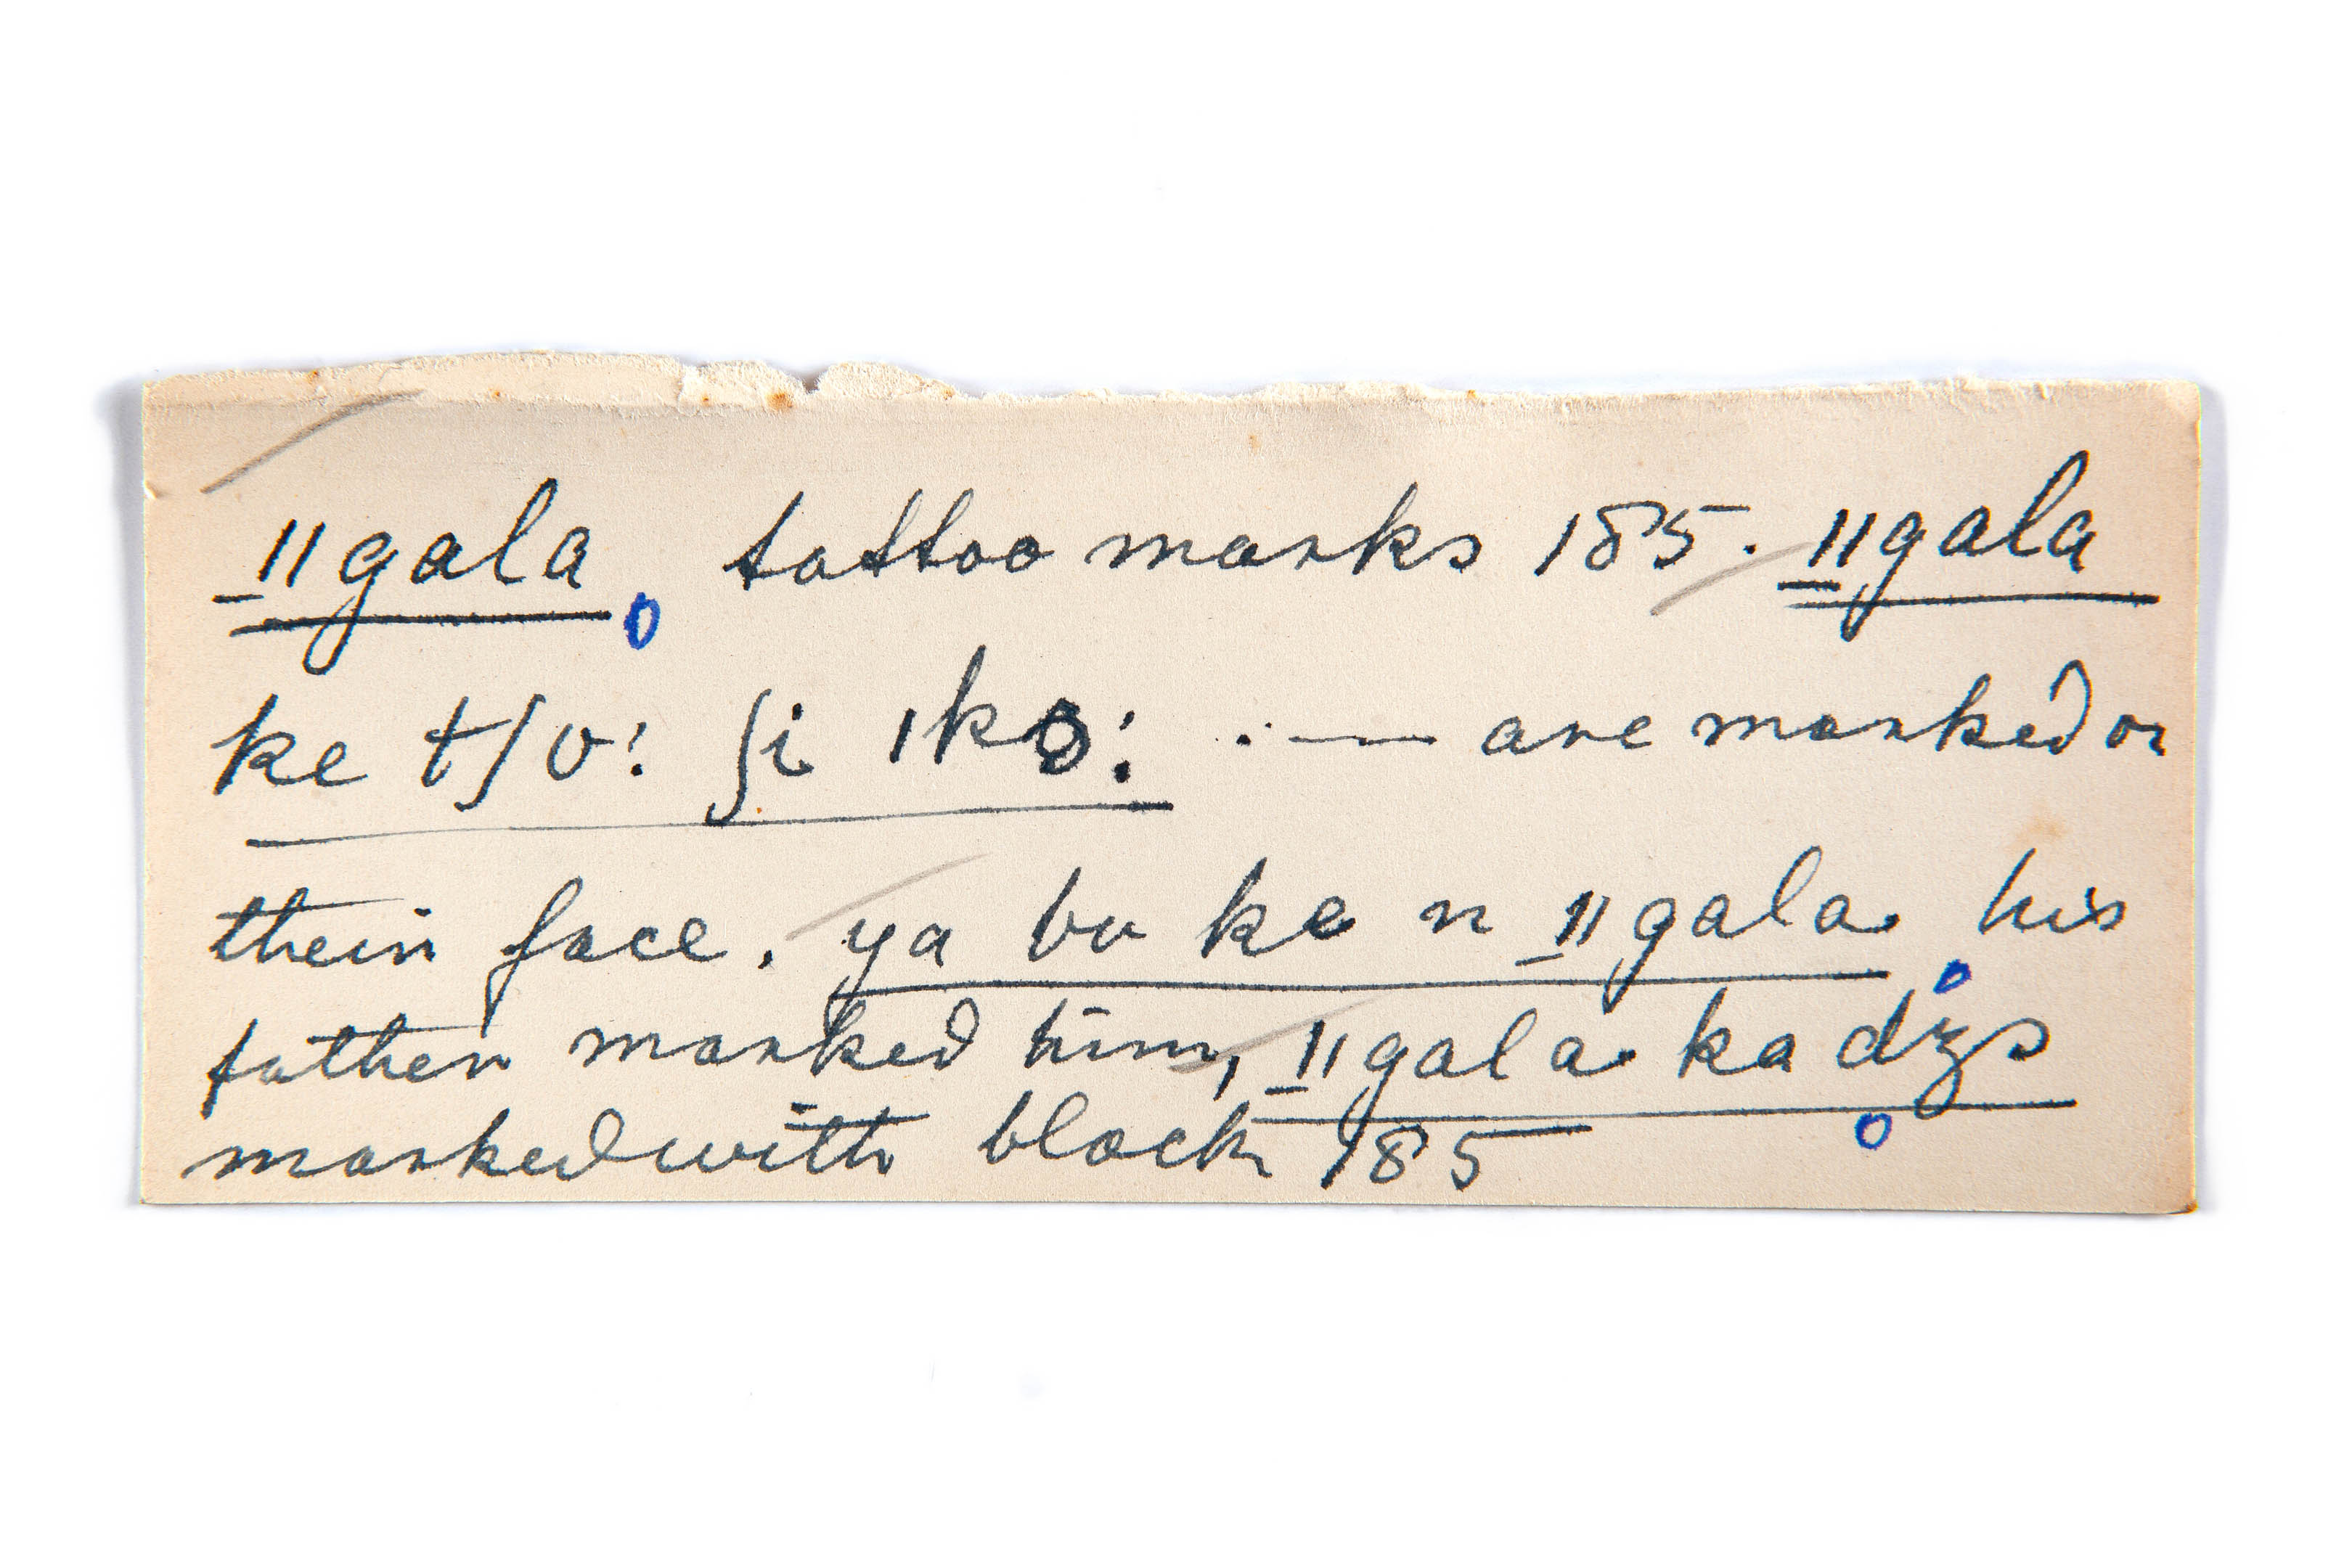 _ǁgala, tattoo marks 185. _ǁgala
ke tʃʋ: ʃi ǀkɔ: .—— are marked on
their face. ya bʋ ke n _ǁgala. his
father marked him, _ǁgala. ka dzɔ
marked with black 185